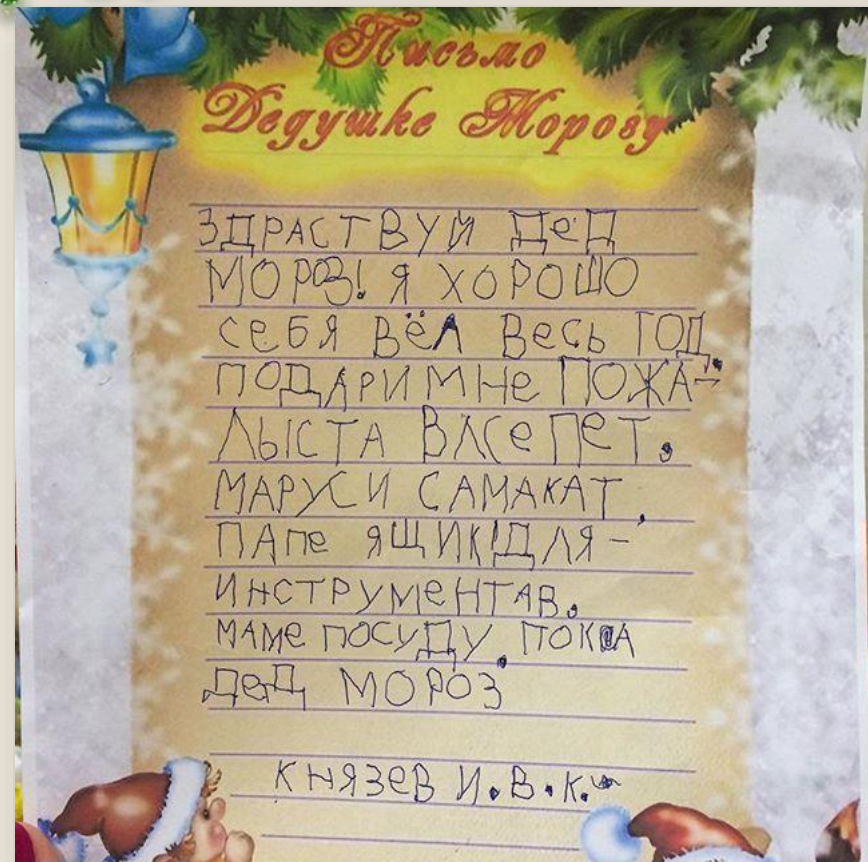 Письмо
Дедушке Морозу
ЗДРАСТВУЙ ДЕД
МОРОЗ! Я ХОРОШО
СЕБЯ ВЁЛ ВЕСЬ ГОД.
ПОДАРИ МНЕ ПОЖА-
ЛЫСТА ВЛСЕПЕТ.
МАРУСИ САМАКАТ,
ПАПЕ ЯЩИК ДЛЯ -
ИНСТРУМЕНТАВ.
МАМЕ ПОСУДУ. ПОКА
ДЕД МОРОЗ
КНЯЗЕВ И.В.К.